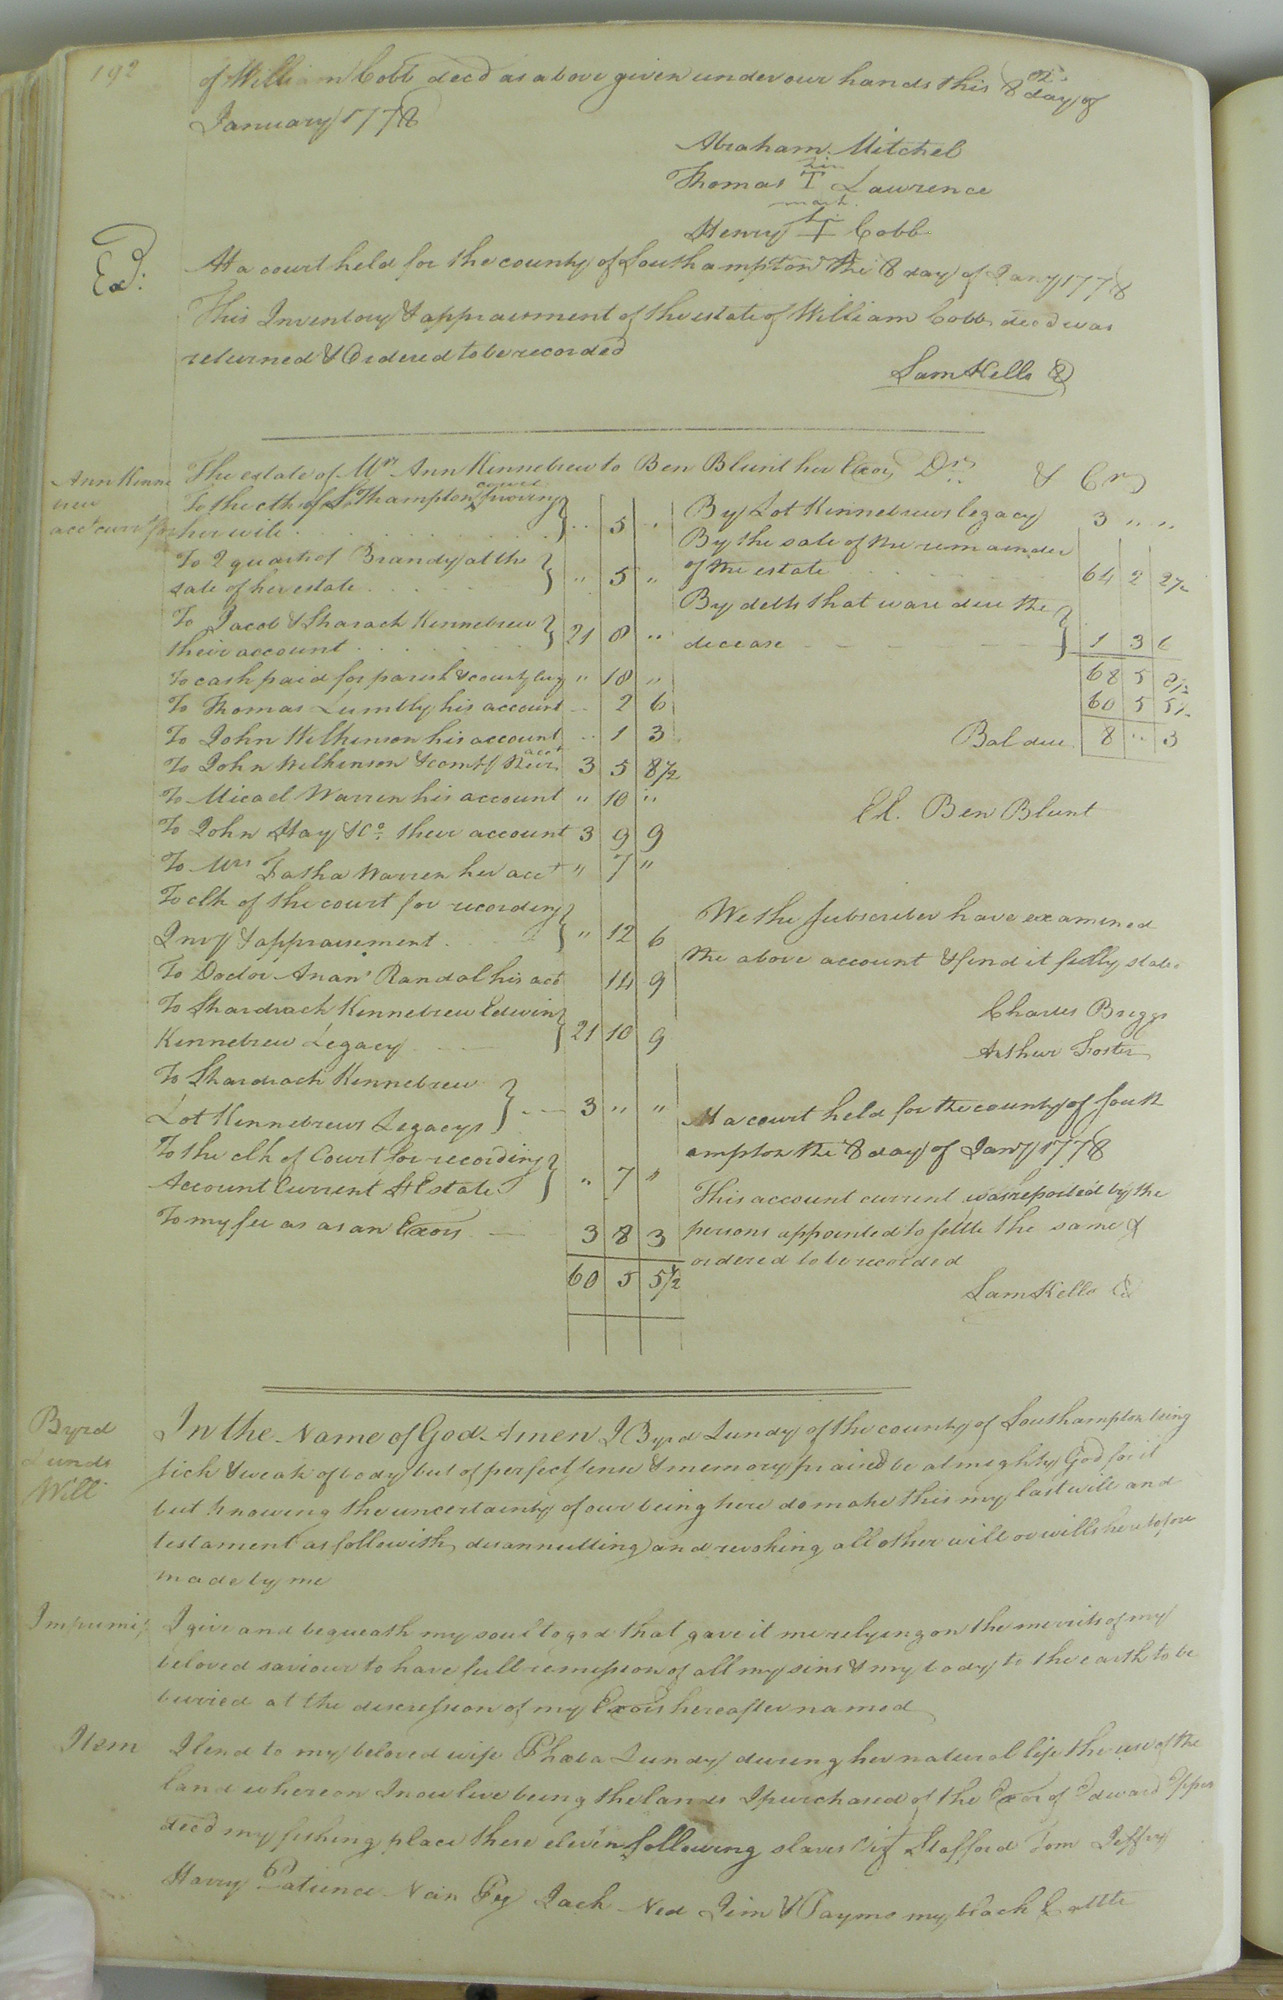 192
of William Cobb decd as above given under our hands this 8th day of
January 1778
Abraham Mitchel
his
Thomas T Lawrence
mark
his
Henry I Cobb
Exd:
At a court held for the county of Southampton the 8 day of Jany 1778
This Inventory & appraisment of the estate of William Cobb decd was
returned & Ordered to be recorded
Sam Kello
Ann Kenne
brew
acct currt
The estate of Mrs Ann Kennebrew to Ben Blunt her Exor, Dr.
To the clk of S.Thampton court Proving
her will } .. 5 ..
To 2 quarts of Brandy at the
sale of her estate } " 5 "
To Jacob & Sharach Kennebrew
their account } 21 8 "
To cash paid for parish & county levy " 18 "
To Thomas Lumbly his account 2 6
To John Wilkinson his account .. 1 3
To John Wilkinson & acct 3 5 8 1/2
To Micael Warren his account " 10 "
To John Hay & Co. their account 3 9 9
To Mrs Fatha Warren her acct " 7 "
To clk of the court for recording
Invy & appraisement } " 12 6
To Doctor Anan Randal his act 14 9
To Shardrach Kennebrew Edwin
Kennebrew Legacy } 21 10 9
To Shardrach Kennebrew
Lot Kennebrews Legacys } 3 " "
To the clk of Court for recording
Account Current & Estate } " 7 "
To my fee as as an Exors 3 8 3
60 5 5 1/2
& Cr
By Lot Kennebrews legacy 3 " "
By the sale of the remainder
of the estate 64 2 2 1/2
By debts that ware due the
decease } 1 3 6
68 5 8 1/2
60 5 5 1/2
Bal due 8 " 3
Ex. Ben Blunt
We the subscriber have examined
the above account & find it fully state
Charles Briggs
Arthur Foster
At a court held for the county of South
ampton the 8 day of Jany 1778
This account current was reported by the
persons appointed to settle the same &
ordered to be recorded
Sam Kello
Byrd
Lunds
Will
In the Name of God Amen I Byrd Lundy of the county of Southampton being
sick & weak of body but of perfect sense & memory praised be almighty God for it
but knowing the uncertainty of our being here do make this my last will and
testament as followith, disannulling and revoking all other will or wills heretofore
made by me
Impremis
I give and bequeath my soul to god that gave it me relying on the merrits of my
beloved saviour to have full remission of all my sins & my body to the earth to be
burried at the discression of my Exors hereafter named
Item
I lend to my beloved wife Phaba Lundy during her natural life the use of the
land whereon I now live being the lands I purchased of the Exor of Edward
decd my fishing place these eleven following slaves Viz Stafford Tom Jeffry
Harry Patience Nan Peg Jack Ned Jim & my black Cattle